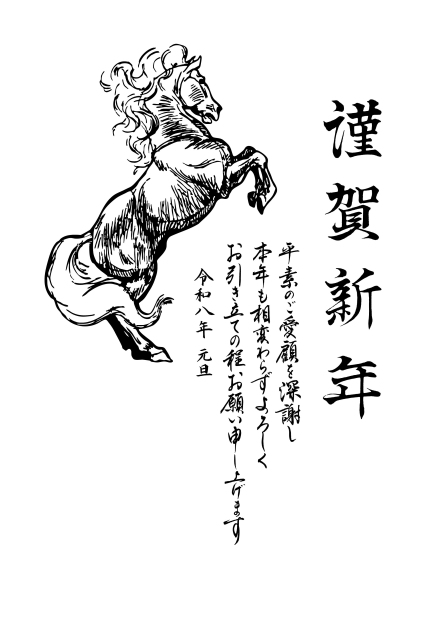 謹賀新年
平素のご愛顧を深謝し
本年も相変わらずよろしく
お引き立ての程お願い申し上げます
令和八年 元旦